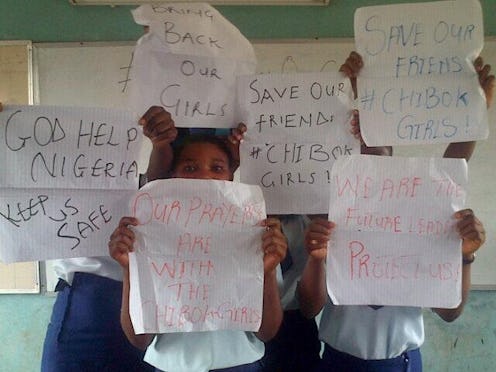 BRING
BACK
# OUR
GIRLS
SAVE OUR
FRIENS
# CHIBOK
GIRLS !
GOD HELP
NIGERIA
KEEP US
SAFE
SAVE OUR
FRIENDS
# CHIBOK
GIRLS !
OUR PRAYERS
ARE
WITH
THE
CHIBOK GIRLS
WE ARE THE
FUTURE
PROTECT US!